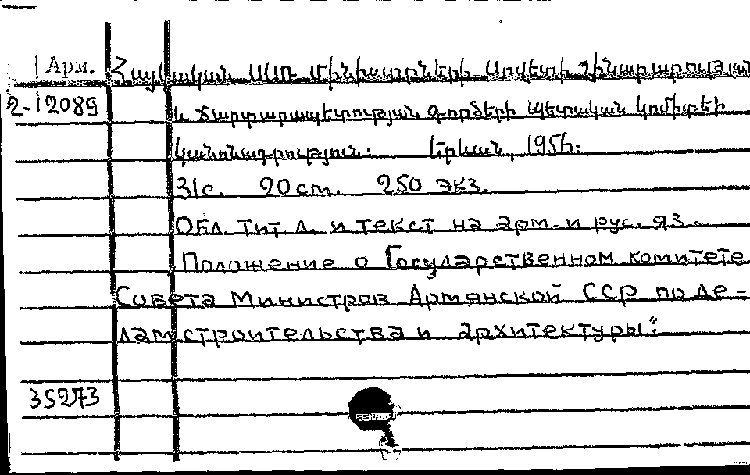 Арм. Հայկական ՍՍՌ Մինիստրների Սովետի շինարարության
2-12089 և ճարտարապետության գործերի պետական կոմիտեի
կանոնադրություն. Երևան, 195
31с. 20 cm. 250 экз.
Обл. тит. л. и текст на арм. и рус. яз.
Положение о Государственном комитете
Совета Министров Армянской ССР по де-
лам строительства и архитектуры"
35273